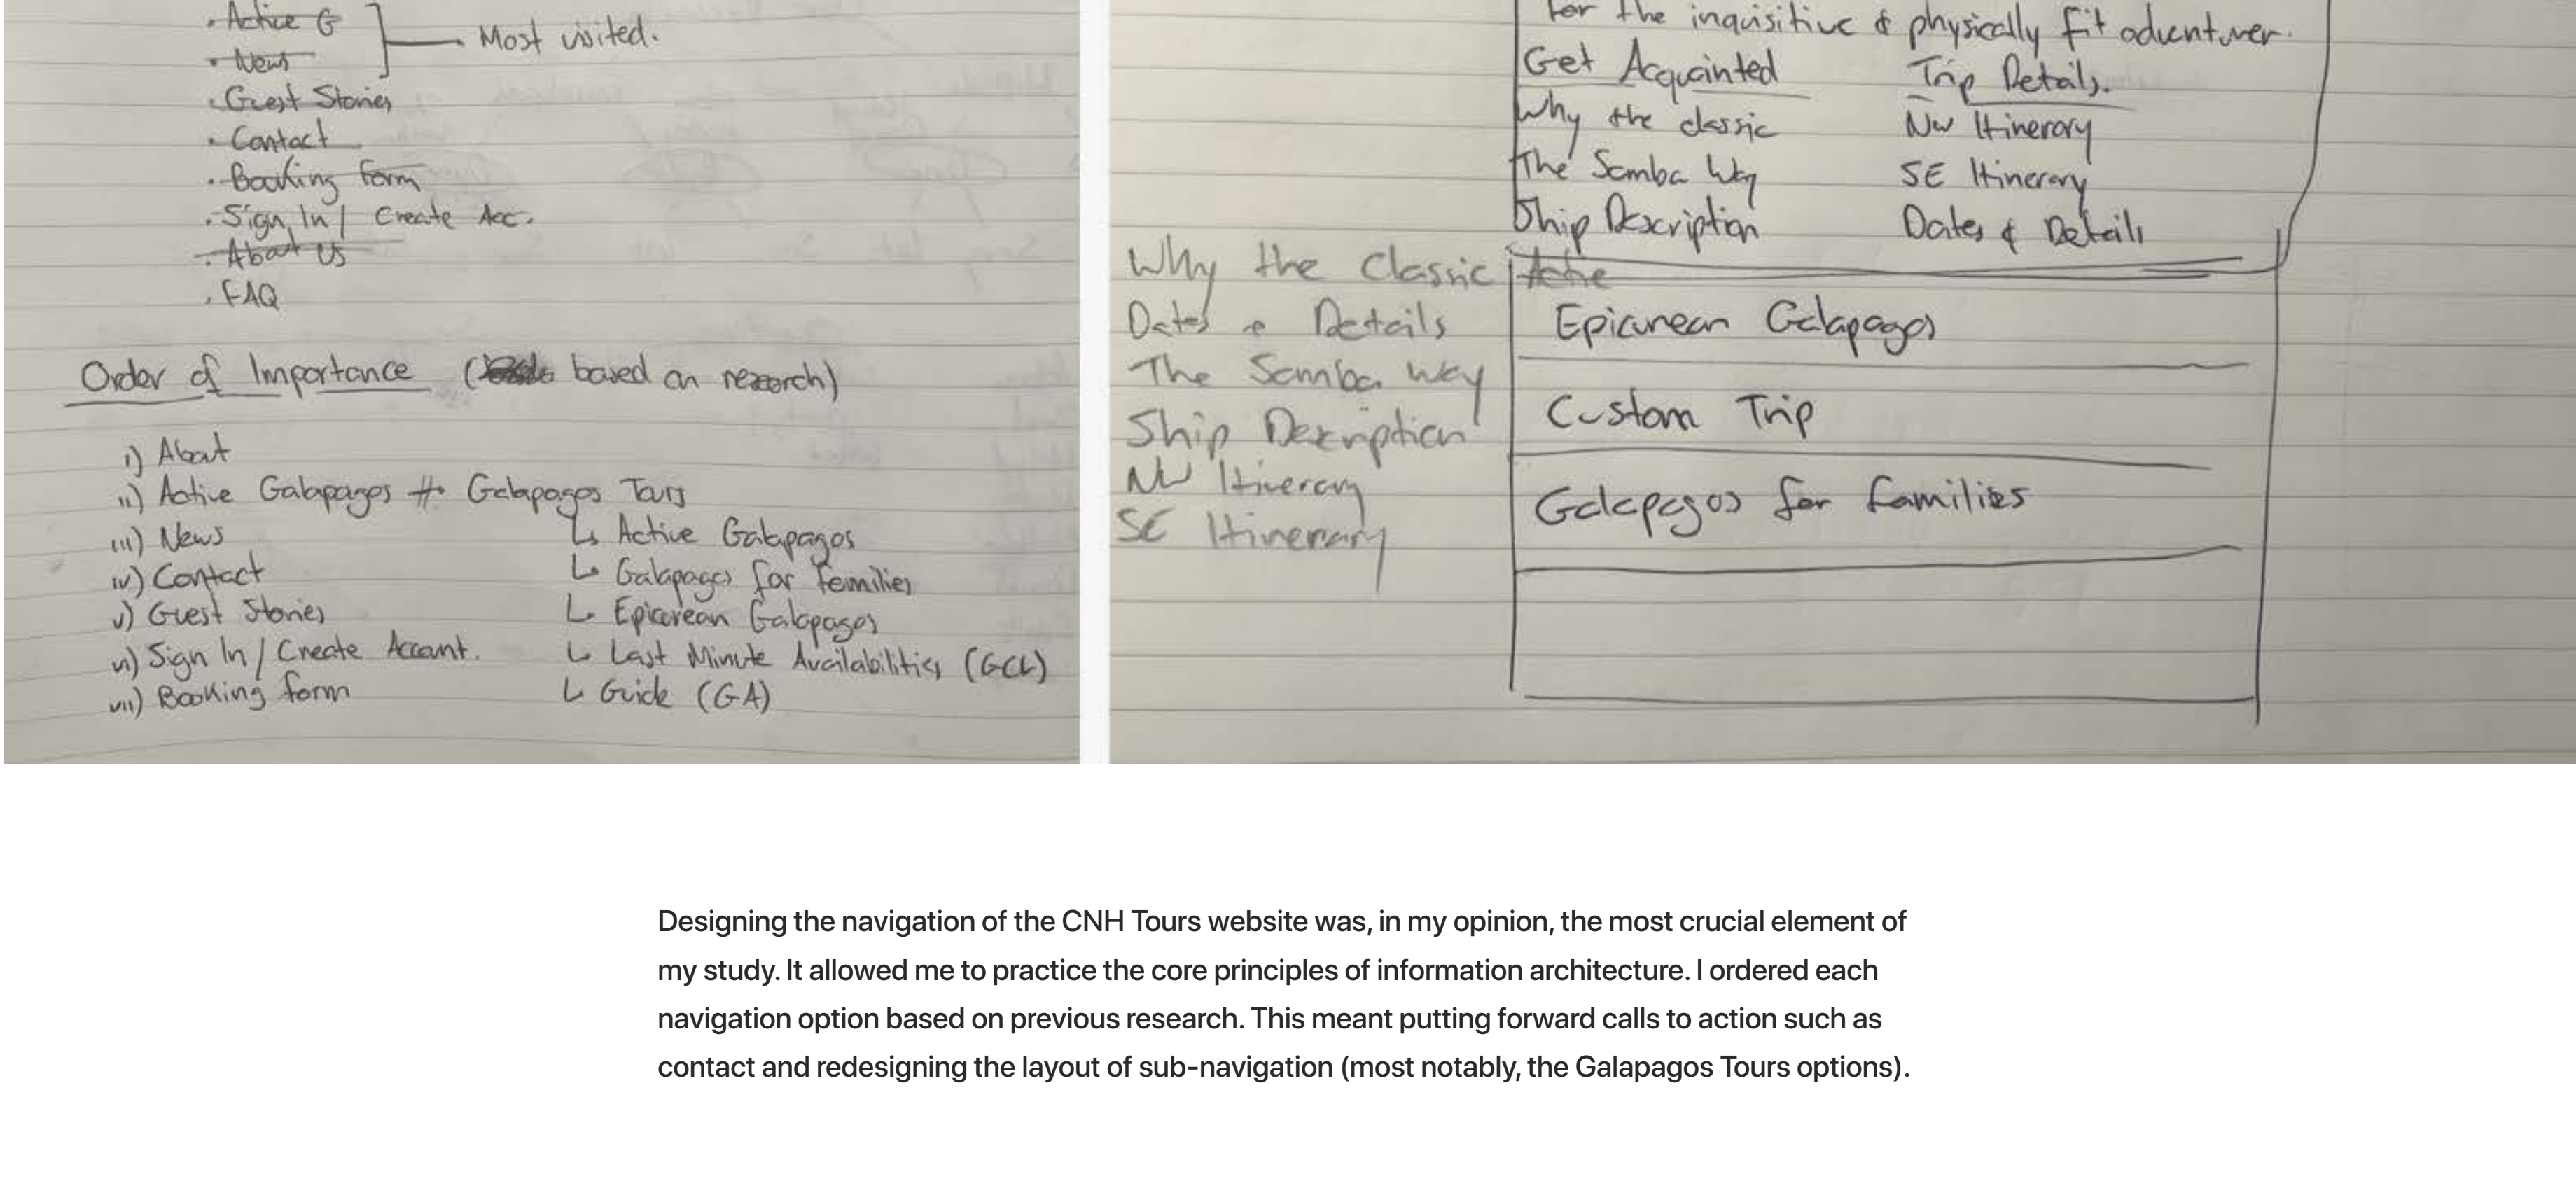 Active G
News
Most visited.
Guest Stories
Contact
Booking form
Sign In / Create Acc.
About Us
FAQ
Order of Importance ( based on research)
i) About
ii) Active Galapagos # Galapagos Tours
iii) News
iv) Contact
v) Guest Stories
vi) Sign In / Create Account.
vii) Booking form
↳ Active Galapagos
↳ Galapagos for Families
↳ Epicurean Galapagos
↳ Last Minute Availabilities (GCL)
↳ Guide (GA)
For the inquisitive & physically fit adventurer.
Get Acquainted
Why the classic
The Samba Way
Ship Description
Trip Details.
NW Itinerary
SE Itinerary
Dates & Details
Why the Classic
Dates & Details
The Samba Way
Ship Description
NW Itinerary
SE Itinerary
Epicurean Galapagos
Custom Trip
Galapagos for families
Designing the navigation of the CNH Tours website was, in my opinion, the most crucial element of
my study. It allowed me to practice the core principles of information architecture. I ordered each
navigation option based on previous research. This meant putting forward calls to action such as
contact and redesigning the layout of sub-navigation (most notably, the Galapagos Tours options).